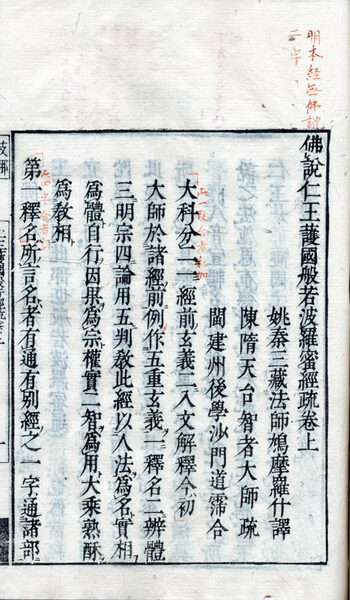 明本經無佛說
二字
佛說仁王護國般若波羅蜜經疏卷上
姚秦三藏法師鳩摩羅什譯
陳隋天台智者大師疏
閩建州後學沙門道霈合
大科分二一經前玄義二入文解釋今初
大師於諸經前例作五重玄義一釋名二辨體
三明宗四論用五判敎此經以人法爲名實相
爲體自行因果爲宗權實二智爲用大乘熟酥
爲敎相
第一釋名所言名者有通有別經之一字通諸部